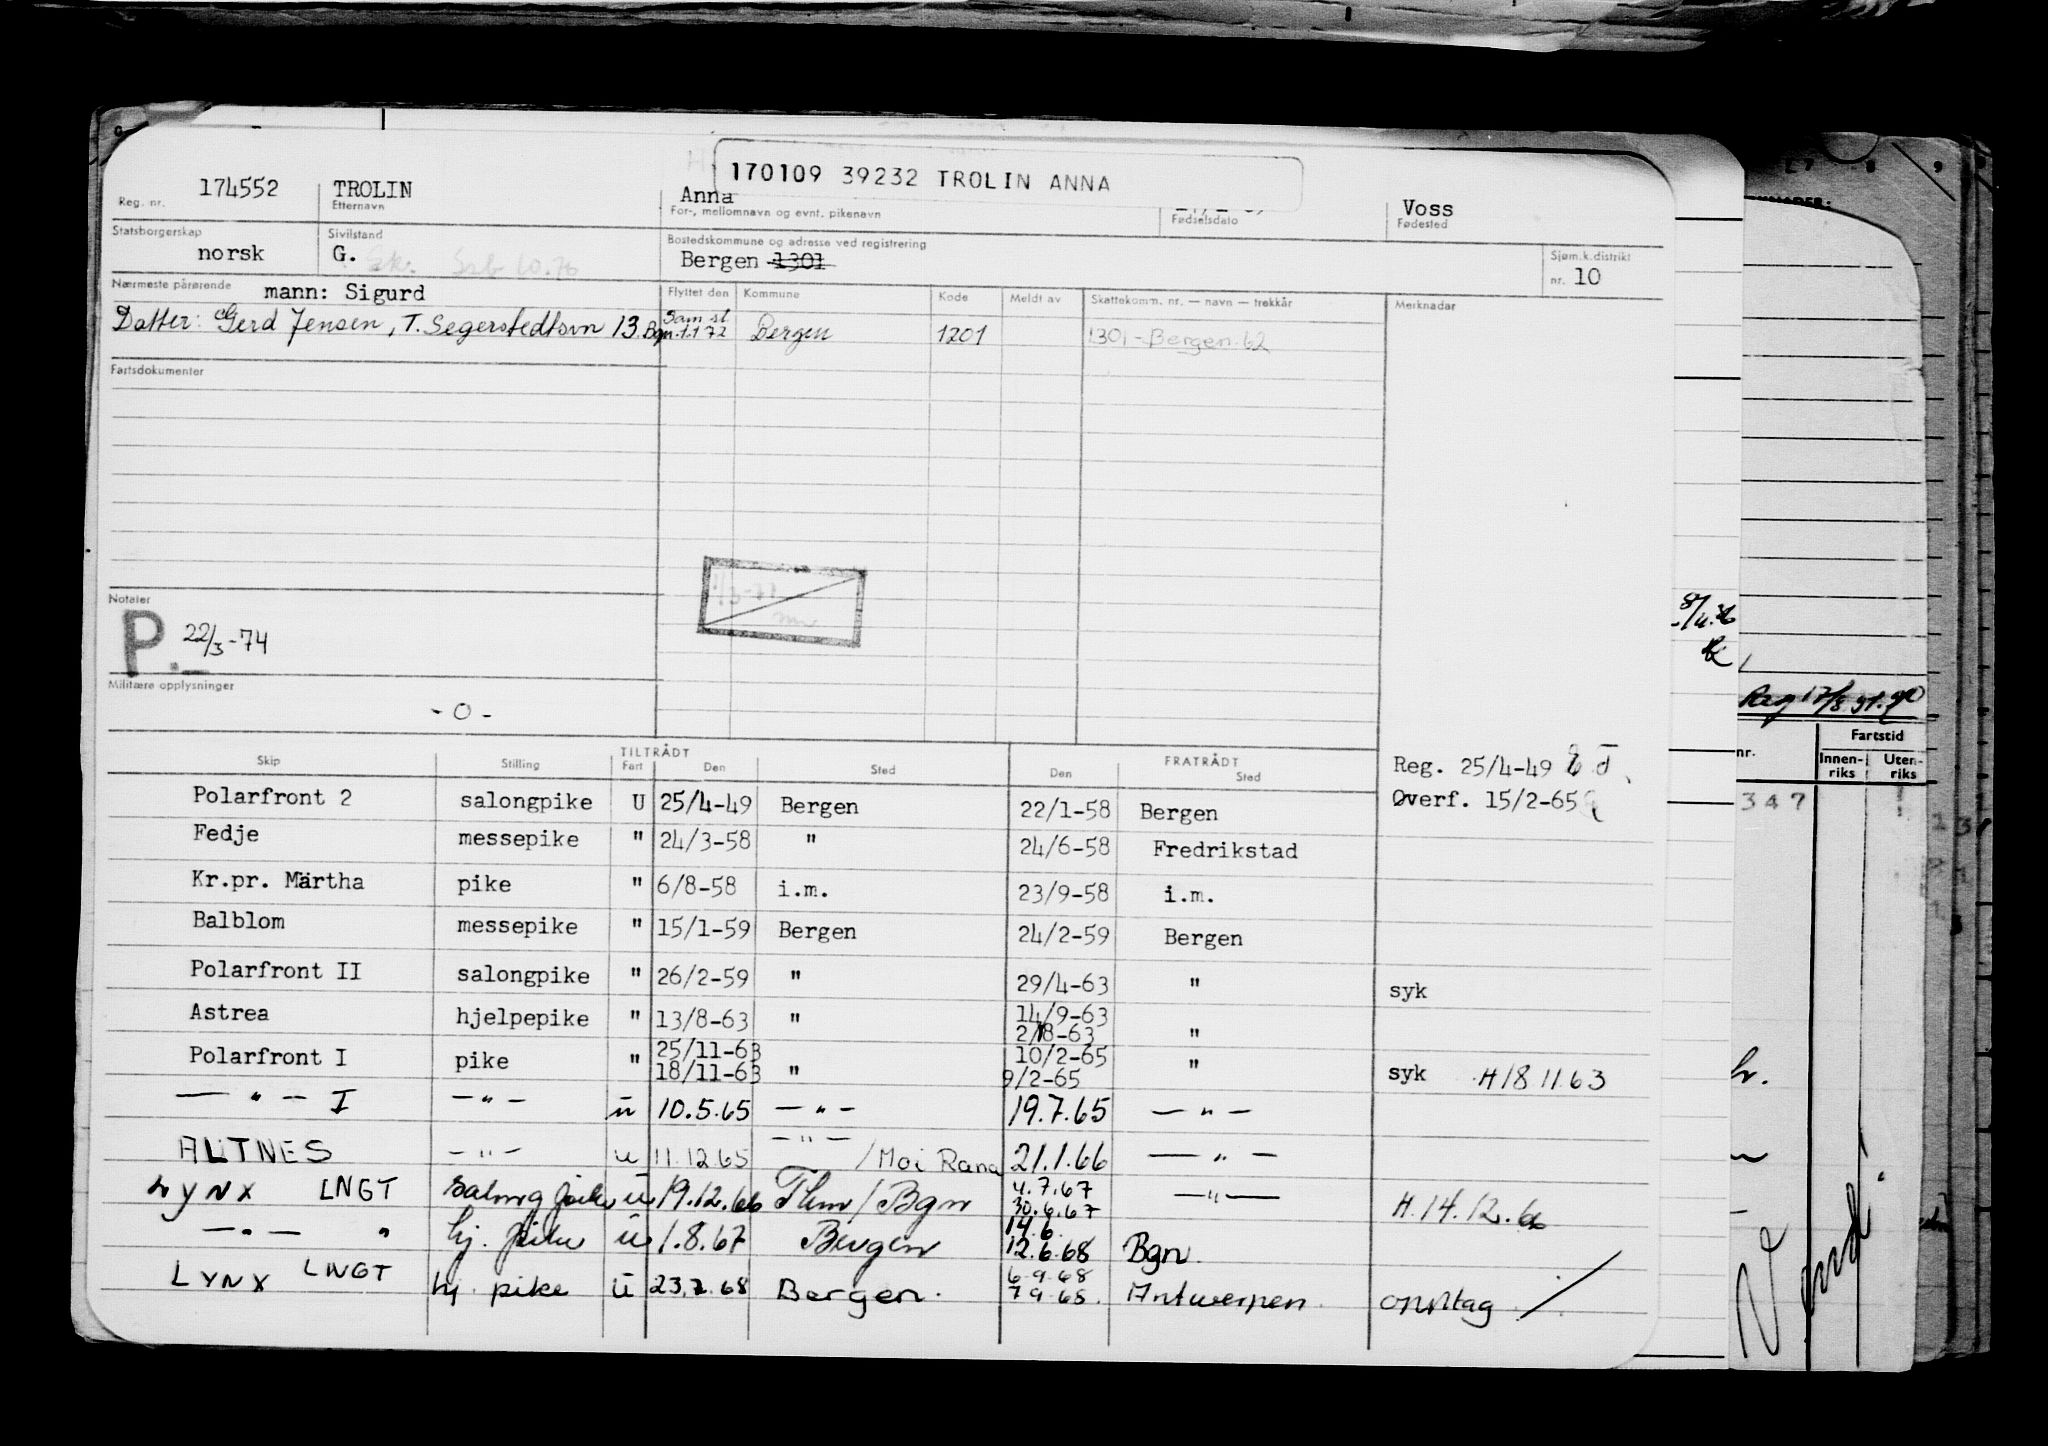 170109 39232 TROLIN ANNA
Reg. nr. 174552 TROLIN Anna Voss
Etternavn For-, mellomnavn og evnt. pikenavn Fødselsdato Fødested
Statsborgerskap norsk Sivilstand G. Bostedskommune og adresse ved registrering Bergen 1301 Sjøm.k.distrikt nr. 10
Nærmeste pårørende mann: Sigurd Flyttet den Kommune Kode Meldt av Skattekomm. nr. — navn — trekkår Merknader
Datter: Gerd Jensen, T. Segerstedtsvn 13. Bgn. Sam st 1.1 72 Bergen 1201 1301 - Bergen 62
Fartsdokumenter
Notater
P. 22/3-74
Militære opplysninger
- O -
TILTRÅDT FRATRÅDT
Skip Stilling Fart Den Sted Den Sted
Reg. 25/4-49
Overf. 15/2-65
Polarfront 2 salongpike U 25/4-49 Bergen 22/1-58 Bergen
Fedje messepike " 24/3-58 " 24/6-58 Fredrikstad
Kr.pr. Märtha pike " 6/8-58 i.m. 23/9-58 i.m.
Balblom messepike " 15/1-59 Bergen 24/2-59 Bergen
Polarfront II salongpike " 26/2-59 " 29/4-63 " syk
Astrea hjelpepike " 13/8-63 " 14/9-63 "
Polarfront I pike " 25/11-63 18/11-63 " 10/2-65 9/2-65 " syk H 18 11.63
— " — I — " — u 10.5.65 — " — 19.7.65 — " —
ALTNES — " — u 11.12.65 — " — / Moi Rana 21.1.66 — " —
LYNX LNGT u 19.12.66 / Bgn 4.7.67 30.6.67 — " — H. 14.12.66
— " — " hj. pike u 1.8.67 Bergen 14.6. 12.6.68 Bgn.
LYNX LNGT hj. pike u 23.7.68 Bergen. 6.9.68 7.9.68. Antwerpen.
Reg 17/8
nr. Fartstid
Innen-riks Uten-riks
347
Vend!